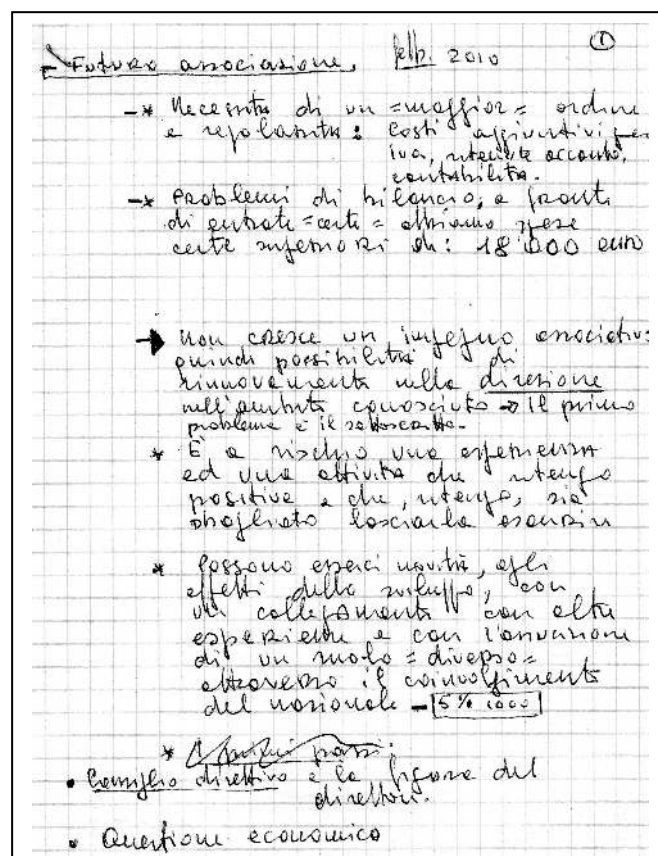 - Futuro associazione, febb. 2010 ①
-* Necessità di un =maggior= ordine
e regolarità: costi aggiuntivi per
iva, ritenute acconto,
contabilità.
-* Problemi di bilancio, a fronte
di entrate =certe= abbiamo spese
certe superiori di: 18.000 euro
→ Non cresce un impegno associativo
quindi possibilità di
rinnovamento nella direzione
nell'ambito conosciuto → il primo
problema è il sottoscritto.
* È a rischio una esperienza
ed una attività che ritengo
positiva e che, ritengo, sia
sbagliato lasciarla esaurire
* Possono esserci novità, agli
effetti dello sviluppo, con
un collegamento con altre
esperienze e con l'assunzione
di un ruolo =diverso=
attraverso il coinvolgimento
del nazionale - 5% 1000
* I primi passi:
• Consiglio direttivo e la figura del
direttore.
• Questione economica